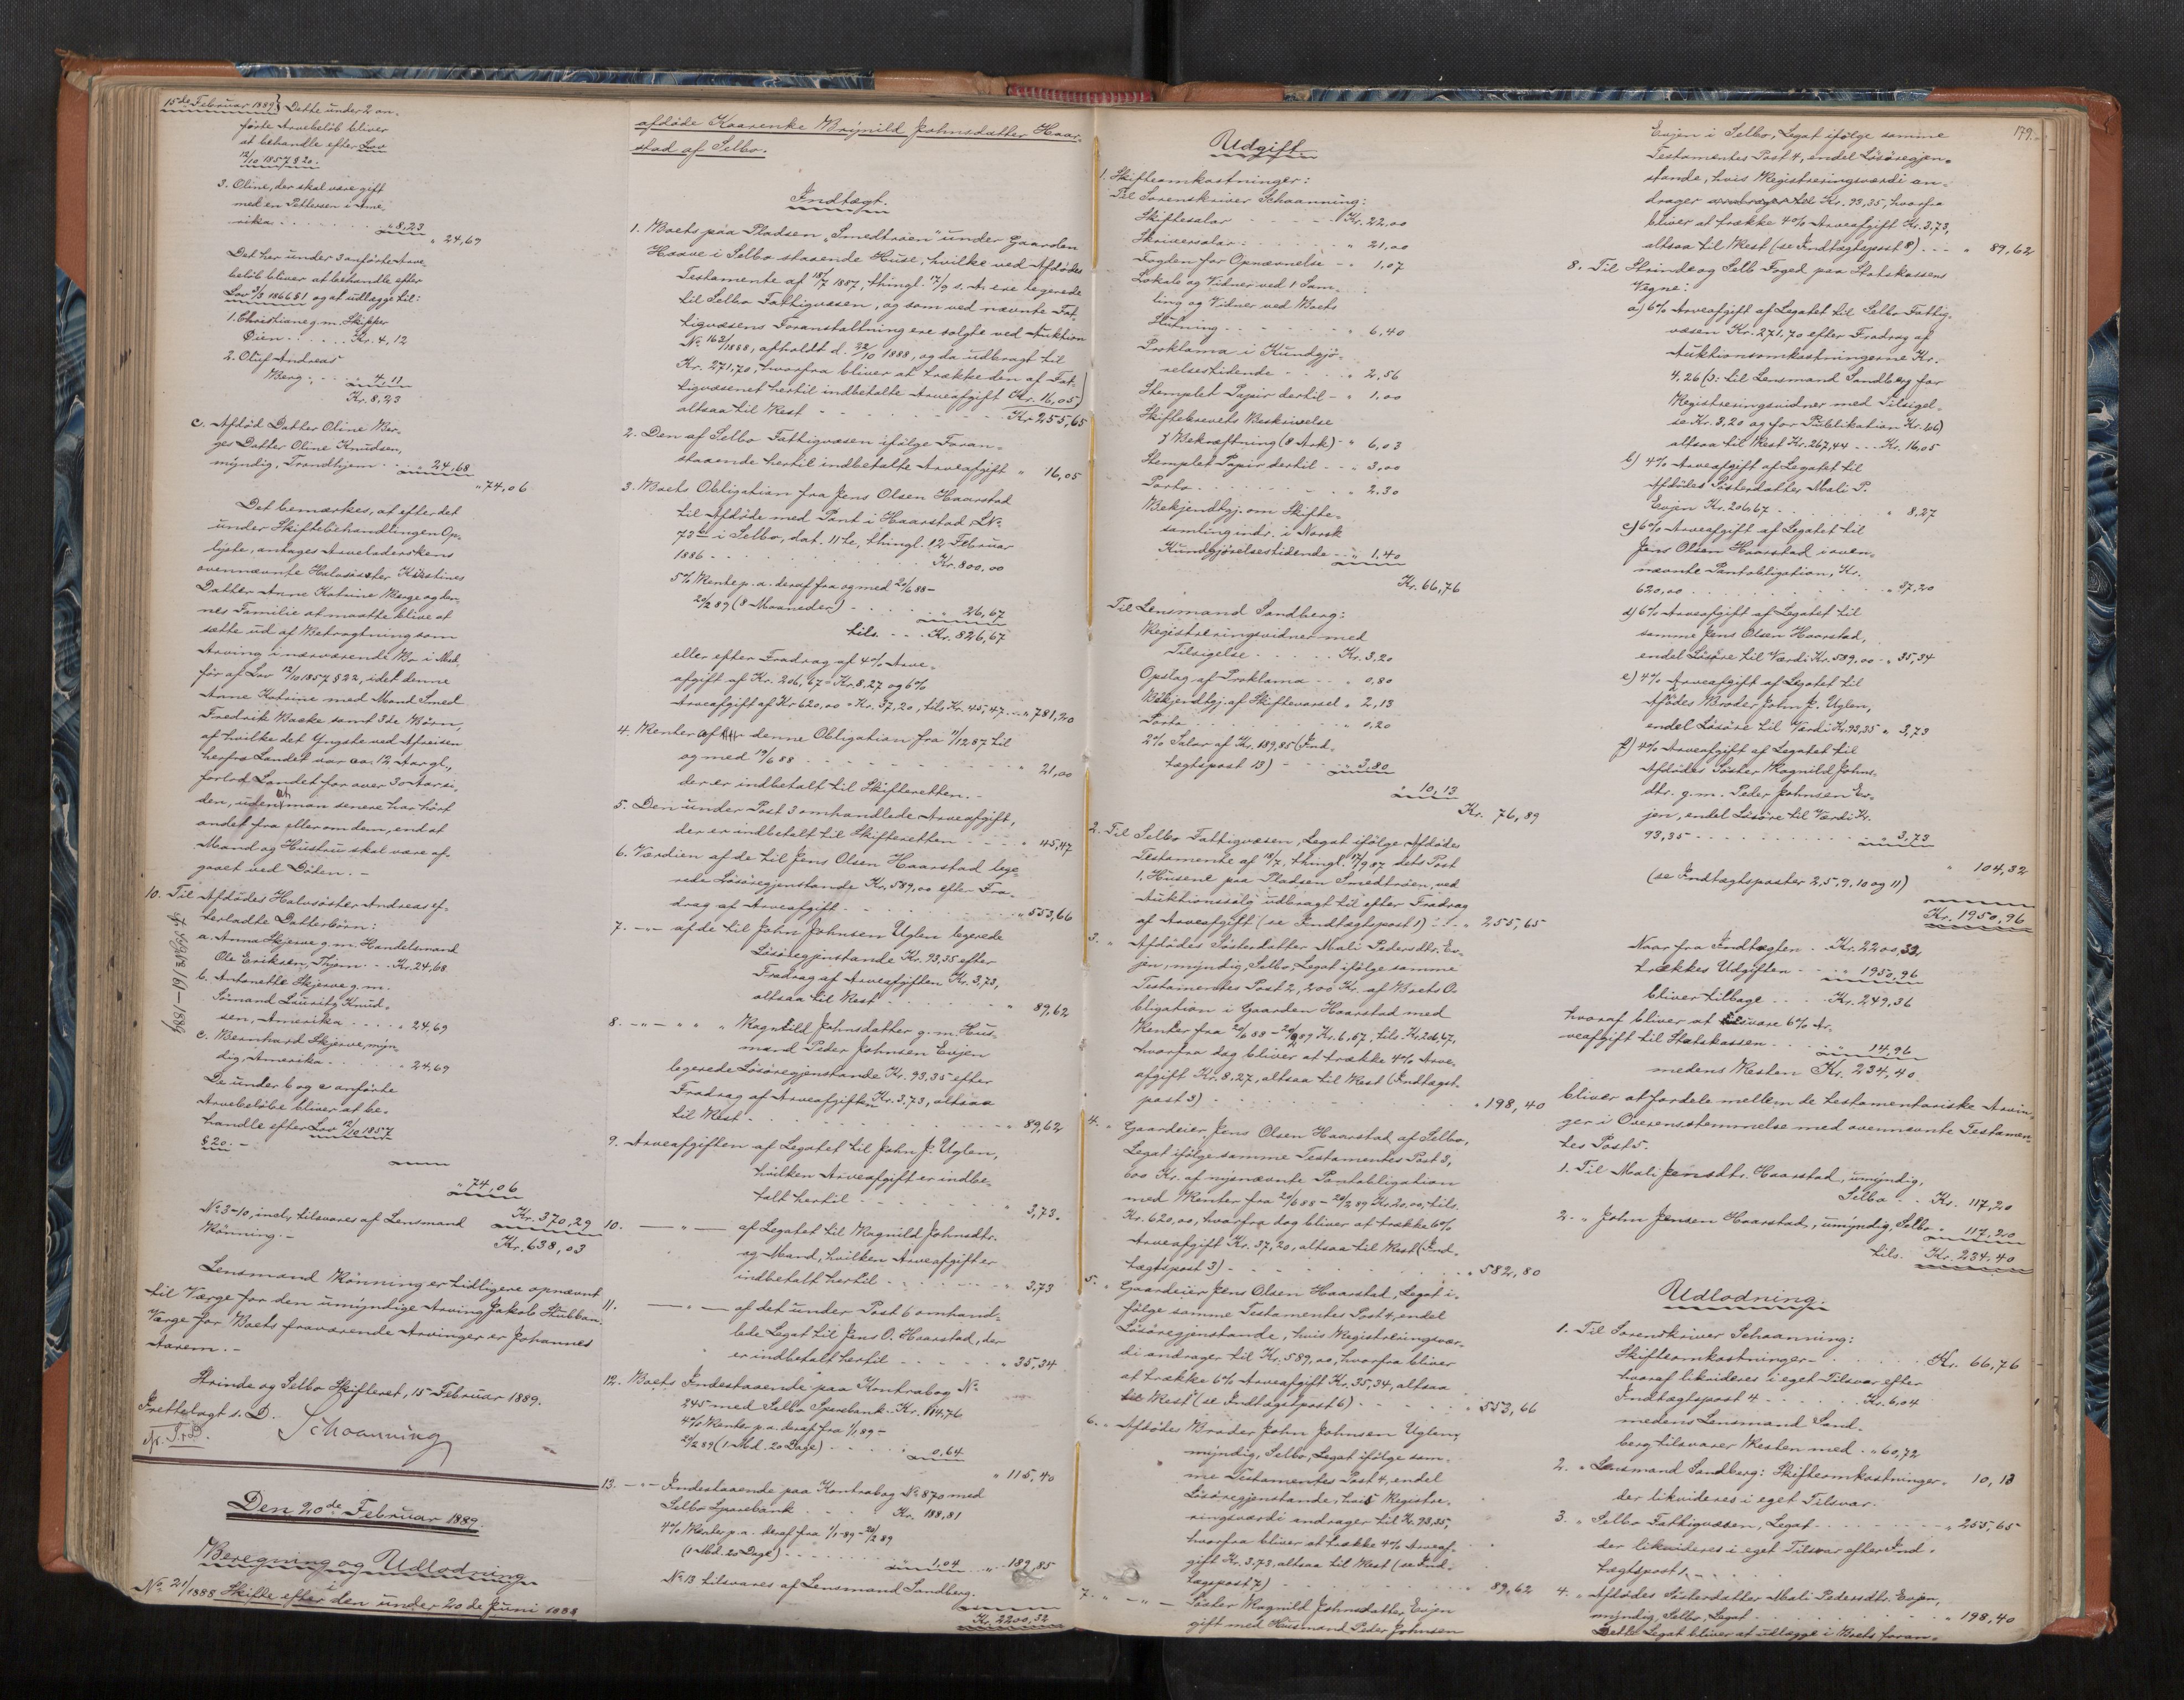 15de Februar 1889} Dette under 2 an-
førte Arvebeløb bliver
at behandle efter Lov
12/10 1857 § 20.
3. Oline, der skal være gift
med en Pettersen i Ame-
rika . . . . . . . " 8,23
" 24,69
Det her under 3 anførte Arve-
beløb bliver at behandle efter
Lov 3/3 1866 § 1 og at udlægge til:
1. Christiane g. m. Skipper
Øien . . . . . Kr. 4,12
2. Oluf Andreas
Berg . . . . " 4,11
Kr. 8,23
c. Afdød Datter Oline Ber-
ges Datter Oline Knudsen,
myndig, Trondhjem . . . " 24,68
" 74,06
Det bemærkes, at efter det
under Skiftebehandlingen Op-
lyste, antages Arveladerskens
ovennævnte Halvsøster Kirstines
Datter Anne Katrine Berge og den-
nes Familie at maatte blive at
sætte ud af Betragtning som
Arving i nærværende Bo i Med-
før af Lov 12/10 1857 § 22, idet denne
Anne Katrine med Mand Smed
Fredrik Baske samt 3de Børn,
af hvilke det Yngste ved Afreisen
herfra Landet var ca. 12 Aar gl.,
forlod Landet for over 30 Aar si-
den, uden at man senere har hørt
andet fra eller om dem, end at
Mand og Hustru skal være af-
gaaet ved Døden. -
10. Til Afdødes Halvsøster Andreas ef-
terladte Datterbørn:
a. Anna Skjerve g. m. Handelsmand
Ole Eriksen, Thjem . . . Kr. 24,68
b. Antonette Skjerve g. m.
Sømand Lauritz Knud-
sen, Amerika . . . . . " 24,69
c. Bernhard Skjerve, myn-
dig, Amerika . . . . . " 24,69
De under b og c anførte
Arvebeløbe bliver at be-
handle efter Lov 12/10 1857
§ 20. -
" 74,06
Kr. 370,29
No 3-10, incl., tilsvares af Lensmand
Rønning. -
Kr. 638,03
Lensmand Rønning er tidligere opnævnt
til Værge for den umyndige Arving Jakob Stubban.
Værge for Boets fraværende Arvinger er Johannes
Aarem. -
Strinde og Selbo Skifteret, 15 Februar 1889.
Frettelagt s. D.
Schaanning
Den 20de Februar 1889.
Beregning og Udlodning
i
No 21/1888 Skifte efter den under 20de Juni 1888
afdøde Kaarenke Brynild Johnsdatter Haar-
stad af Selbo.
Indtægt.
1. Boets paa Pladsen "Smedtrøen" under Gaarden
Haave i Selbo staaende Huse, hvilke ved Afdødes
Testamente af 18/7 1887, thingl. 17/9 s. A. ere legerede
til Selbo Fattigvæsen, og som ved nævnte Fat-
tigvæsens Foranstaltning ere solgte ved Auktion
No 162/1888, afholdt d. 22/10 1888, og da udbragt til
Kr. 271,70, hvorfra bliver at trække den af Fat-
tigvæsenet hertil indbetalte Arveafgift Kr. 16,05,
altsaa til Rest - - - - - - - Kr. 255,65
2. Den af Selbo Fattigvæsen ifølge Foran-
staaende hertil indbetalte Arveafgift " 16,05
3. Boets Obligation fra Jens Olsen Haarstad
til Afdøde med Pant i Haarstad LNo
73 i Selbo, dat. 11te, thingl. 12 Februar
1886 - - - - - - - Kr. 800,00
5% Rente p. a. deraf fra og med 20/6 88 -
20/2 89 (8 Maaneder) - - - - " 26,67
tils. - - - Kr. 826,67
eller efter Fradrag af 4% Arve-
afgift af Kr. 206,67 = Kr. 8,27 og 6%
Arveafgift af Kr. 620,00 = Kr. 37,20, tils. Kr. 45,47 . . " 781,20
4. Renter af denne Obligation fra 11/12 87 til
og med 19/6 88 - - - - - - - " 21,00
der er indbetalt til Skifteretten. -
5. Den under Post 3 omhandlede Arveafgift,
der er indbetalt til Skifteretten - - - - " 45,47
6. Værdien af de til Jens Olsen Haarstad lege-
rede Løsøregjenstande Kr. 589,00 efter Fra-
drag af Arveafgift - - - - - - - " 553,66
7. -"- af de til John Johnsen Uglen legerede
Løsøregjenstande Kr. 93,35 efter
Fradrag af Arveafgiften Kr. 3,73,
altsaa til Rest - - - - - - " 89,62
8. -"- " " " Ragnild Johnsdatter g. m. Hus-
mand Peder Johnsen Evjen
legerede Løsøregjenstande Kr. 93,35 efter
Fradrag af Arveafgiften Kr. 3,73, altsaa
til Rest - - - - - - - - " 89,62
9. Arveafgiften af Legatet til John J. Uglen,
hvilken Arveafgift er indbe-
talt hertil - - - - - - " 3,73.
10. -"- af Legatet til Ragnild Johnsdtr.
og Mand, hvilken Arveafgift er
indbetalt hertil - - - - - - " 3,73
11. -"- af det under Post 6 omhand-
lede Legat til Jens O. Haarstad, der
er indbetalt hertil - - - - - " 35,34
12. Boets Indestaaende paa Kontrabog No
245 med Selbo Sparebank - Kr. 114,76
4% Renter p. a. deraf fra 1/1 89 -
20/2 89 (1 Md. 20 Dage) - - - - " 0,64
" 115,40
13. -"- Indestaaende paa Kontrabog No 870 med
Selbo Sparebank - - - - Kr. 188,81
4% Renter p. a. deraf fra 1/1-89 - 20/2 89
(1 Md. 20 Dage) - - - - - " 1,04 " 189,85
No 13 tilsvares af Lensmand Sandberg.
Kr. 2200,32
Udgift
1. Skifteomkostninger:
Til Sorenskriver Schaanning:
Skiftesalar - - - - - Kr. 22,00
Skriversalar: - - - - - " 21,00
Fogden for Opnævnelse - " 1,07
Lokale og Vidner ved 1 Sam-
ling og Vidner ved Boets
Slutning - - - - - - " 6,40
Proklama i Kundgjø-
relsestidende - - - - " 2,56
Stemplet Papir dertil - " 1,00
Skiftebrevets Beskrivelse
& Bekræftning (8 Ark) - " 6,03
Stemplet Papir dertil - - " 3,00
Porto - - - - - - - " 2,30
Bekjendtgj. om Skifte-
samling indr. i Norsk
Kundgjørelsestidende - - " 1,40
Kr. 66,76
Til Lensmand Sandberg:
Registreringsvidner med
Tilsigelse . . . . . Kr. 3,20
Opslag af Proklama - - " 0,80
Bekjendtgj. af Skiftevarsel " 2,13
Porto - - - - - - - " 0,20
2% Salar af Kr. 189,85 (Ind-
tægtspost 13) - - - " 3,80
" 10,13
Kr. 76,89
2. Til Selbo Fattigvæsen, Legat ifølge Afdødes
Testamente af 18/7, thingl. 17/9 87 dets Post
1, Husene paa Pladsen Smedtrøen, ved
Auktionssalg udbragt til efter Fradrag
af Arveafgift (se Indtægtspost 1) - - " 255,65
3. " Afdødes Søsterdatter Mali Pedersdtr. Ev-
jen, myndig, Selbo, Legat ifølge samme
Testamentes Post 2, 200 Kr. af Boets O-
bligation i Gaarden Haarstad med
Renter fra 20/6 88 - 20/2 89 Kr. 6,67, tils. Kr. 206,67,
hvorfra dog bliver at trække 4% Arve-
afgift Kr. 8,27, altsaa til Rest (Indtægts-
post 3) - - - - - - - - " 198,40
4. " Gaardeier Jens Olsen Haarstad af Selbo,
Legat ifølge samme Testamentes Post 3,
600 Kr. af nysnævnte Pantobligation
med Renter fra 20/6 88 - 20/2 89 Kr. 20,00, tils.
Kr. 620,00, hvorfra dog bliver at trække 6%
Arveafgift Kr. 37,20, altsaa til Rest (Ind-
tægtspost 3) - - - - - - - - " 582,80
5. " Gaardeier Jens Olsen Haarstad, Legat i-
følge samme Testamentes Post 4, endel
Løsøregjenstande, hvis Registreringsvær-
di andrager til Kr. 589,00, hvorfra bliver
at trække 6% Arveafgift Kr. 35,34, altsaa
til Rest (se Indtægtspost 6) - - - - - " 553,66
6. " Afdødes Broder John Johnsen Uglen,
myndig, Selbo, Legat ifølge sam-
me Testamentes Post 4, endel
Løsøregjenstande, hvis Registre-
ringsværdi andrager til Kr. 93,35,
hvorfra bliver at trække 4% Arveaf-
gift Kr. 3,73, altsaa til Rest (se Ind-
tægtspost 7) - - - - - - - " 89,62
7. " -"- Søster Ragnild Johnsdatter Evjen
gift med Husmand Peder Johnsen
179.
Evjen i Selbo, Legat ifølge samme
Testamentes Post 4, endel Løsøregjen-
stande, hvis Registreringsværdi an-
drager til Kr. 93,35, hvorfra
bliver at trække 4% Arveafgift Kr. 3,73,
altsaa til Rest (se Indtægtspost 8) . . . " 89,62
8. Til Strinde og Selb. Foged paa Statskassens
Vegne:
a) 6% Arveafgift af Legatet til Selbo Fattig-
væsen Kr. 271,70 efter Fradrag af
Auktionsomkostningerne Kr.
4,26 (ɔ: til Lensmand Sandberg for
Registreringsvidner med Tilsigel-
se Kr. 3,20 og for Publikation Kr. 1,06)
altsaa til Rest Kr. 267,44 . . . Kr. 16,05
b) 4% Arveafgift af Legatet til
Afdødes Søsterdatter Mali P.
Evjen Kr. 206,67 - - - - - - " 8,27
c) 6% Arveafgift af Legatet til
Jens Olsen Haarstad i oven-
nævnte Pantobligation, Kr.
620,00 - - - - - - - - " 37,20
d) 6% Arveafgift af Legatet til
samme Jens Olsen Haarstad,
endel Løsøre til Værdi Kr. 589,00 - " 35,34
e) 4% Arveafgift af Legatet til
Afdødes Broder John J. Uglen,
endel Løsøre til Værdi Kr. 93,35 " 3,73
f) 4% Arveafgift af Legatet til
Afdødes Søster Ragnild Johns-
dtr. g. m. Peder Johnsen Ev-
jen, endel Løsøre til Værdi Kr.
93,35 - - - - - - - - " 3,73
" 104,32
(se Indtægtsposter 2, 5, 9, 10 og 11)
Kr. 1950,96
Naar fra Indtægten . . Kr. 2200,32
trækkes Udgiften - - - " 1950,96
bliver tilbage . . . . Kr. 249,36
hvoraf bliver at tilsvare 6% Ar-
veafgift til Statskassen . . . " 14,96
medens Resten Kr. 234,40.
bliver at fordele mellem de testamentariske Arvin-
ger i Overensstemmelse med ovennævnte Testamen-
tes Post 5.
1. Til Mali Jensdtr. Haarstad, umyndig,
Selbo . . Kr. 117,20
2. " John Jensen Haarstad, umyndig, Selbo " 117,20
tils. Kr. 234,40
Udlodning.
1. Til Sorenskriver Schaanning:
Skifteomkostninger - . . . . . Kr. 66,76
hvoraf likvideres i eget Tilsvar efter
Indtægtspost 4 - - - - - Kr. 6,04
medens Lensmand Sand-
berg tilsvarer Resten med . " 60,72
2. " Lensmand Sandberg: Skifteomkostninger " 10,13
der likvideres i eget Tilsvar.
3. " Selbo Fattigvæsen, Legat - - - - - - " 255,65
der likvideres i eget Tilsvar efter Ind-
tægtspost 1. -
4. " Afdødes Søsterdatter Mali Pedersdtr. Evjen,
myndig, Selbo, Legat - - - - - - - " 198,40
Dette Legat bliver at udlægge i Boets foran-